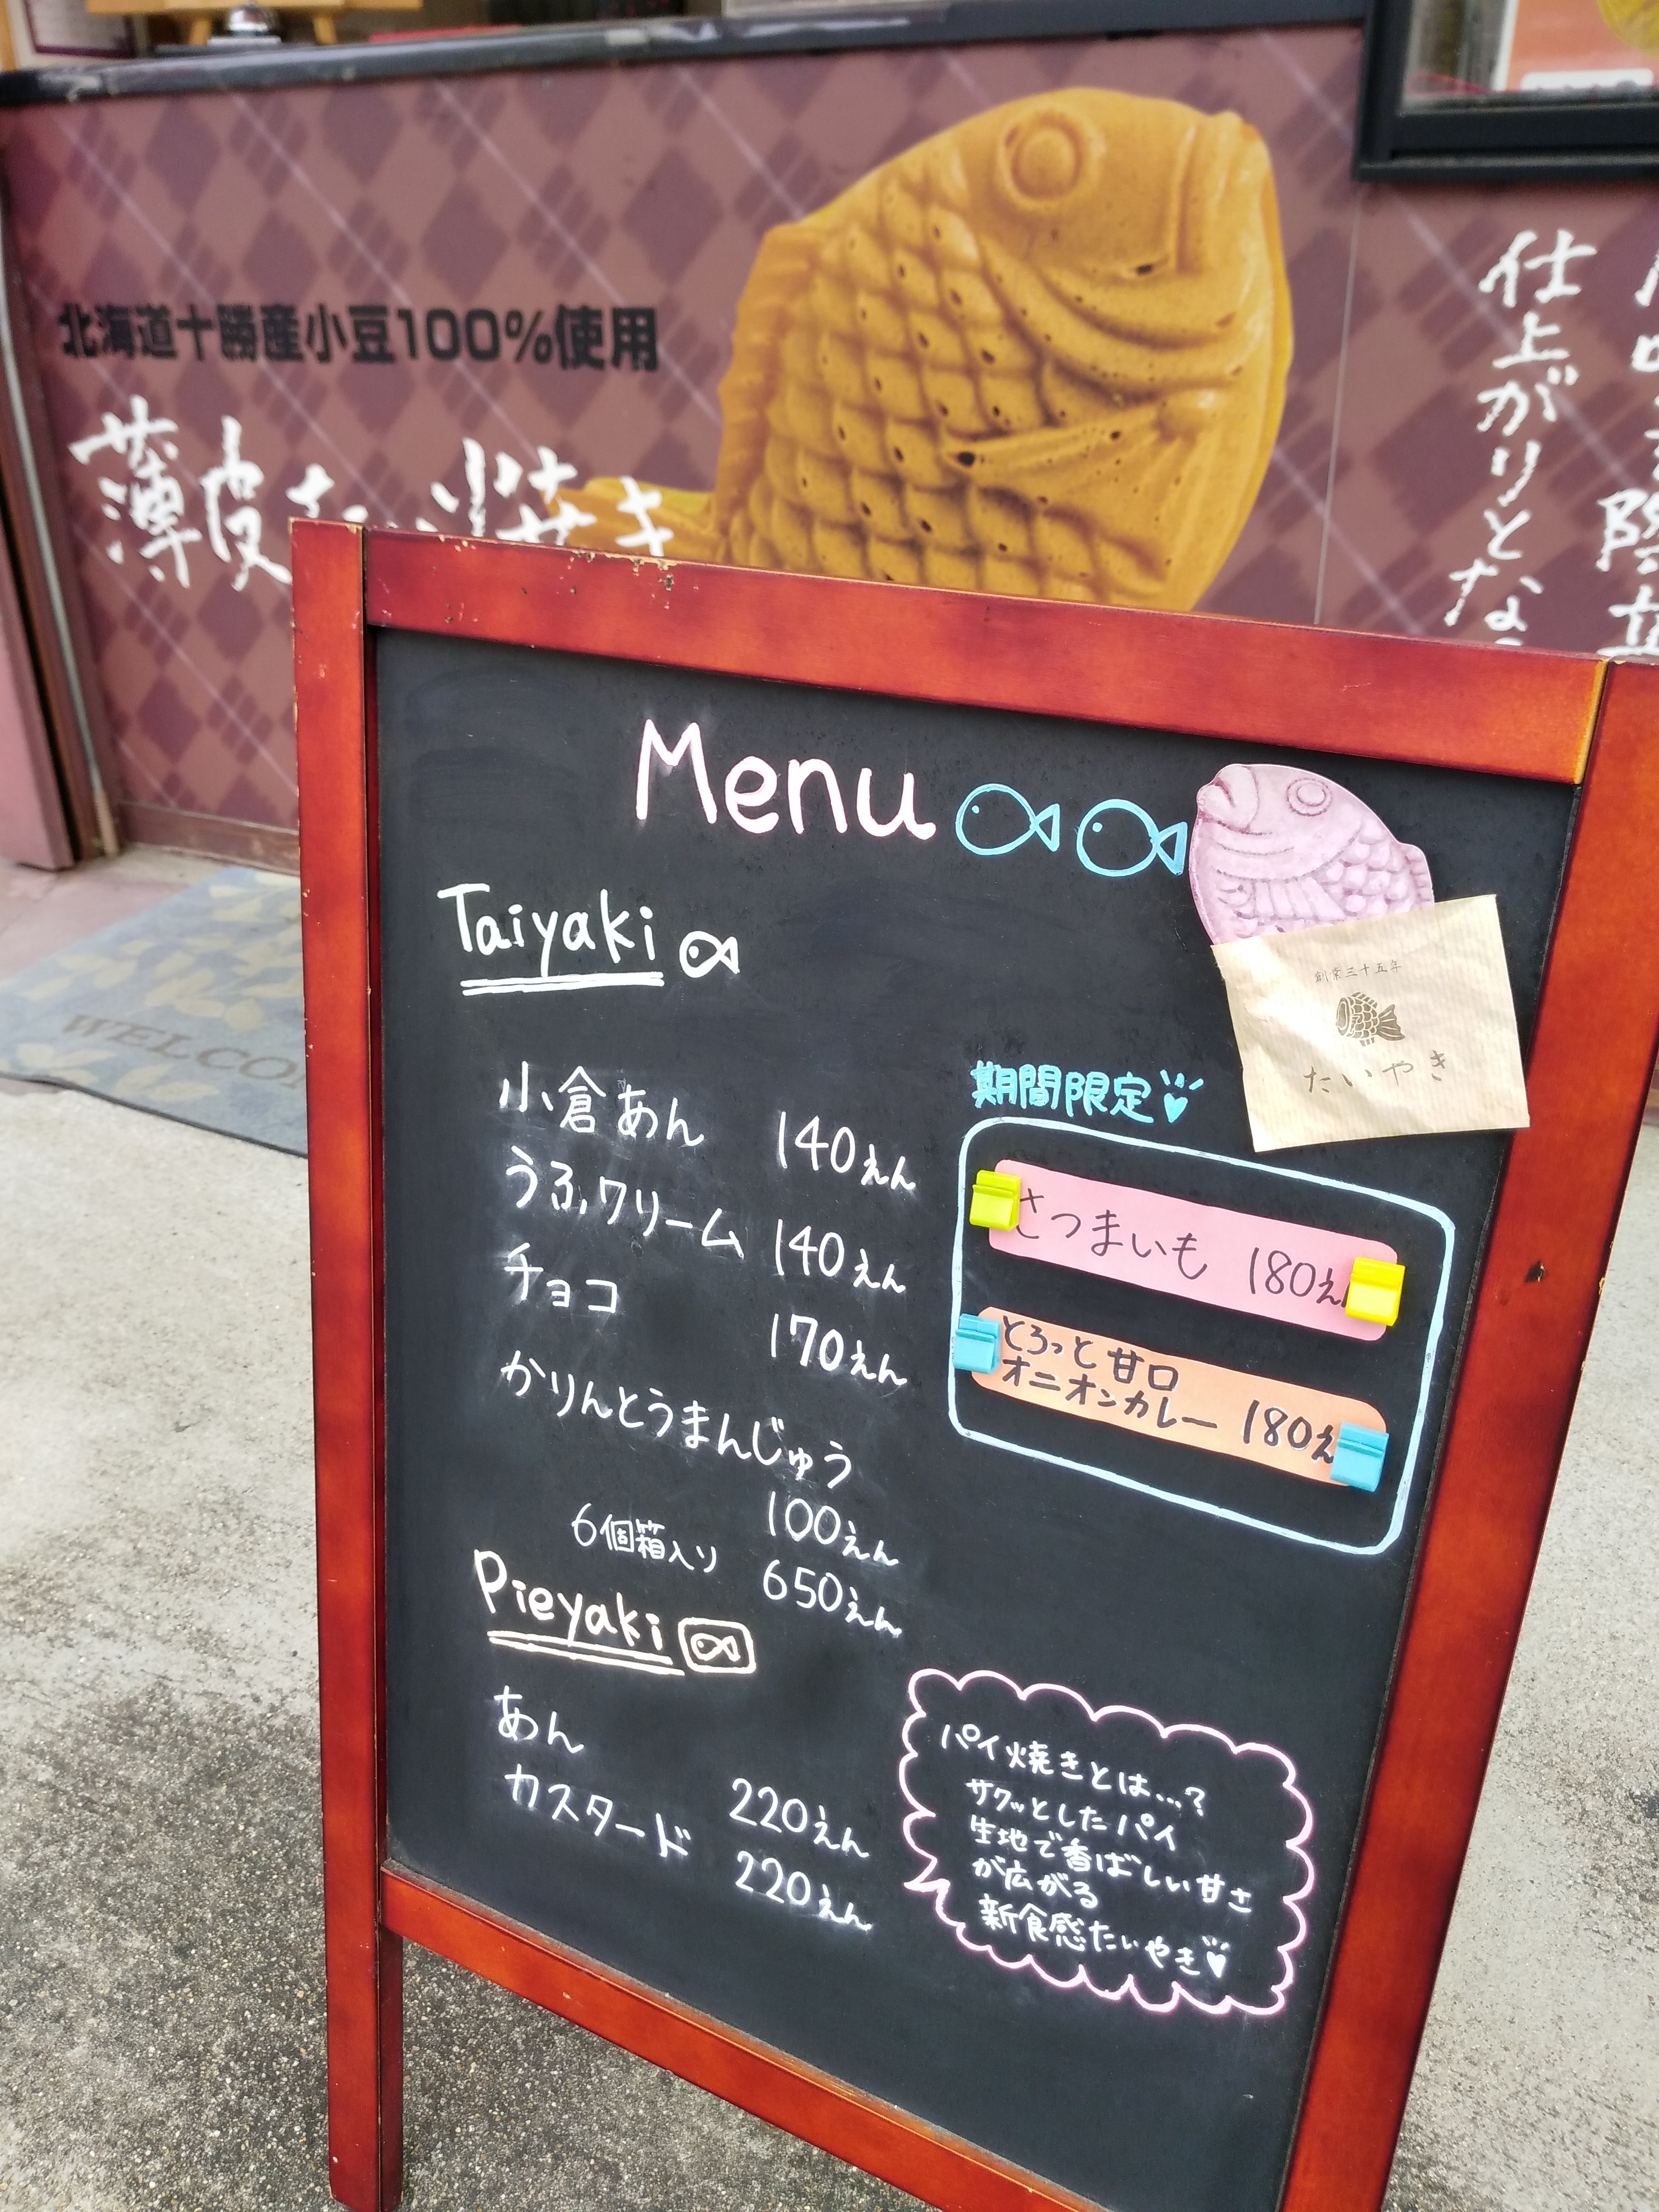 北海道十勝産小豆100%使用
薄皮たい焼き
仕上がりとな
WELCO
Menu
Taiyaki
創業三十五年
たいやき
小倉あん 140えん
うふクリーム 140えん
チョコ 170えん
かりんとうまんじゅう
100えん
6個箱入り 650えん
期間限定
さつまいも 180え
とろっと甘口
オニオンカレー 180え
Pieyaki
あん 220えん
カスタード 220えん
パイ焼きとは...?
サクッとしたパイ
生地で香ばしい甘さ
が広がる
新食感たいやき